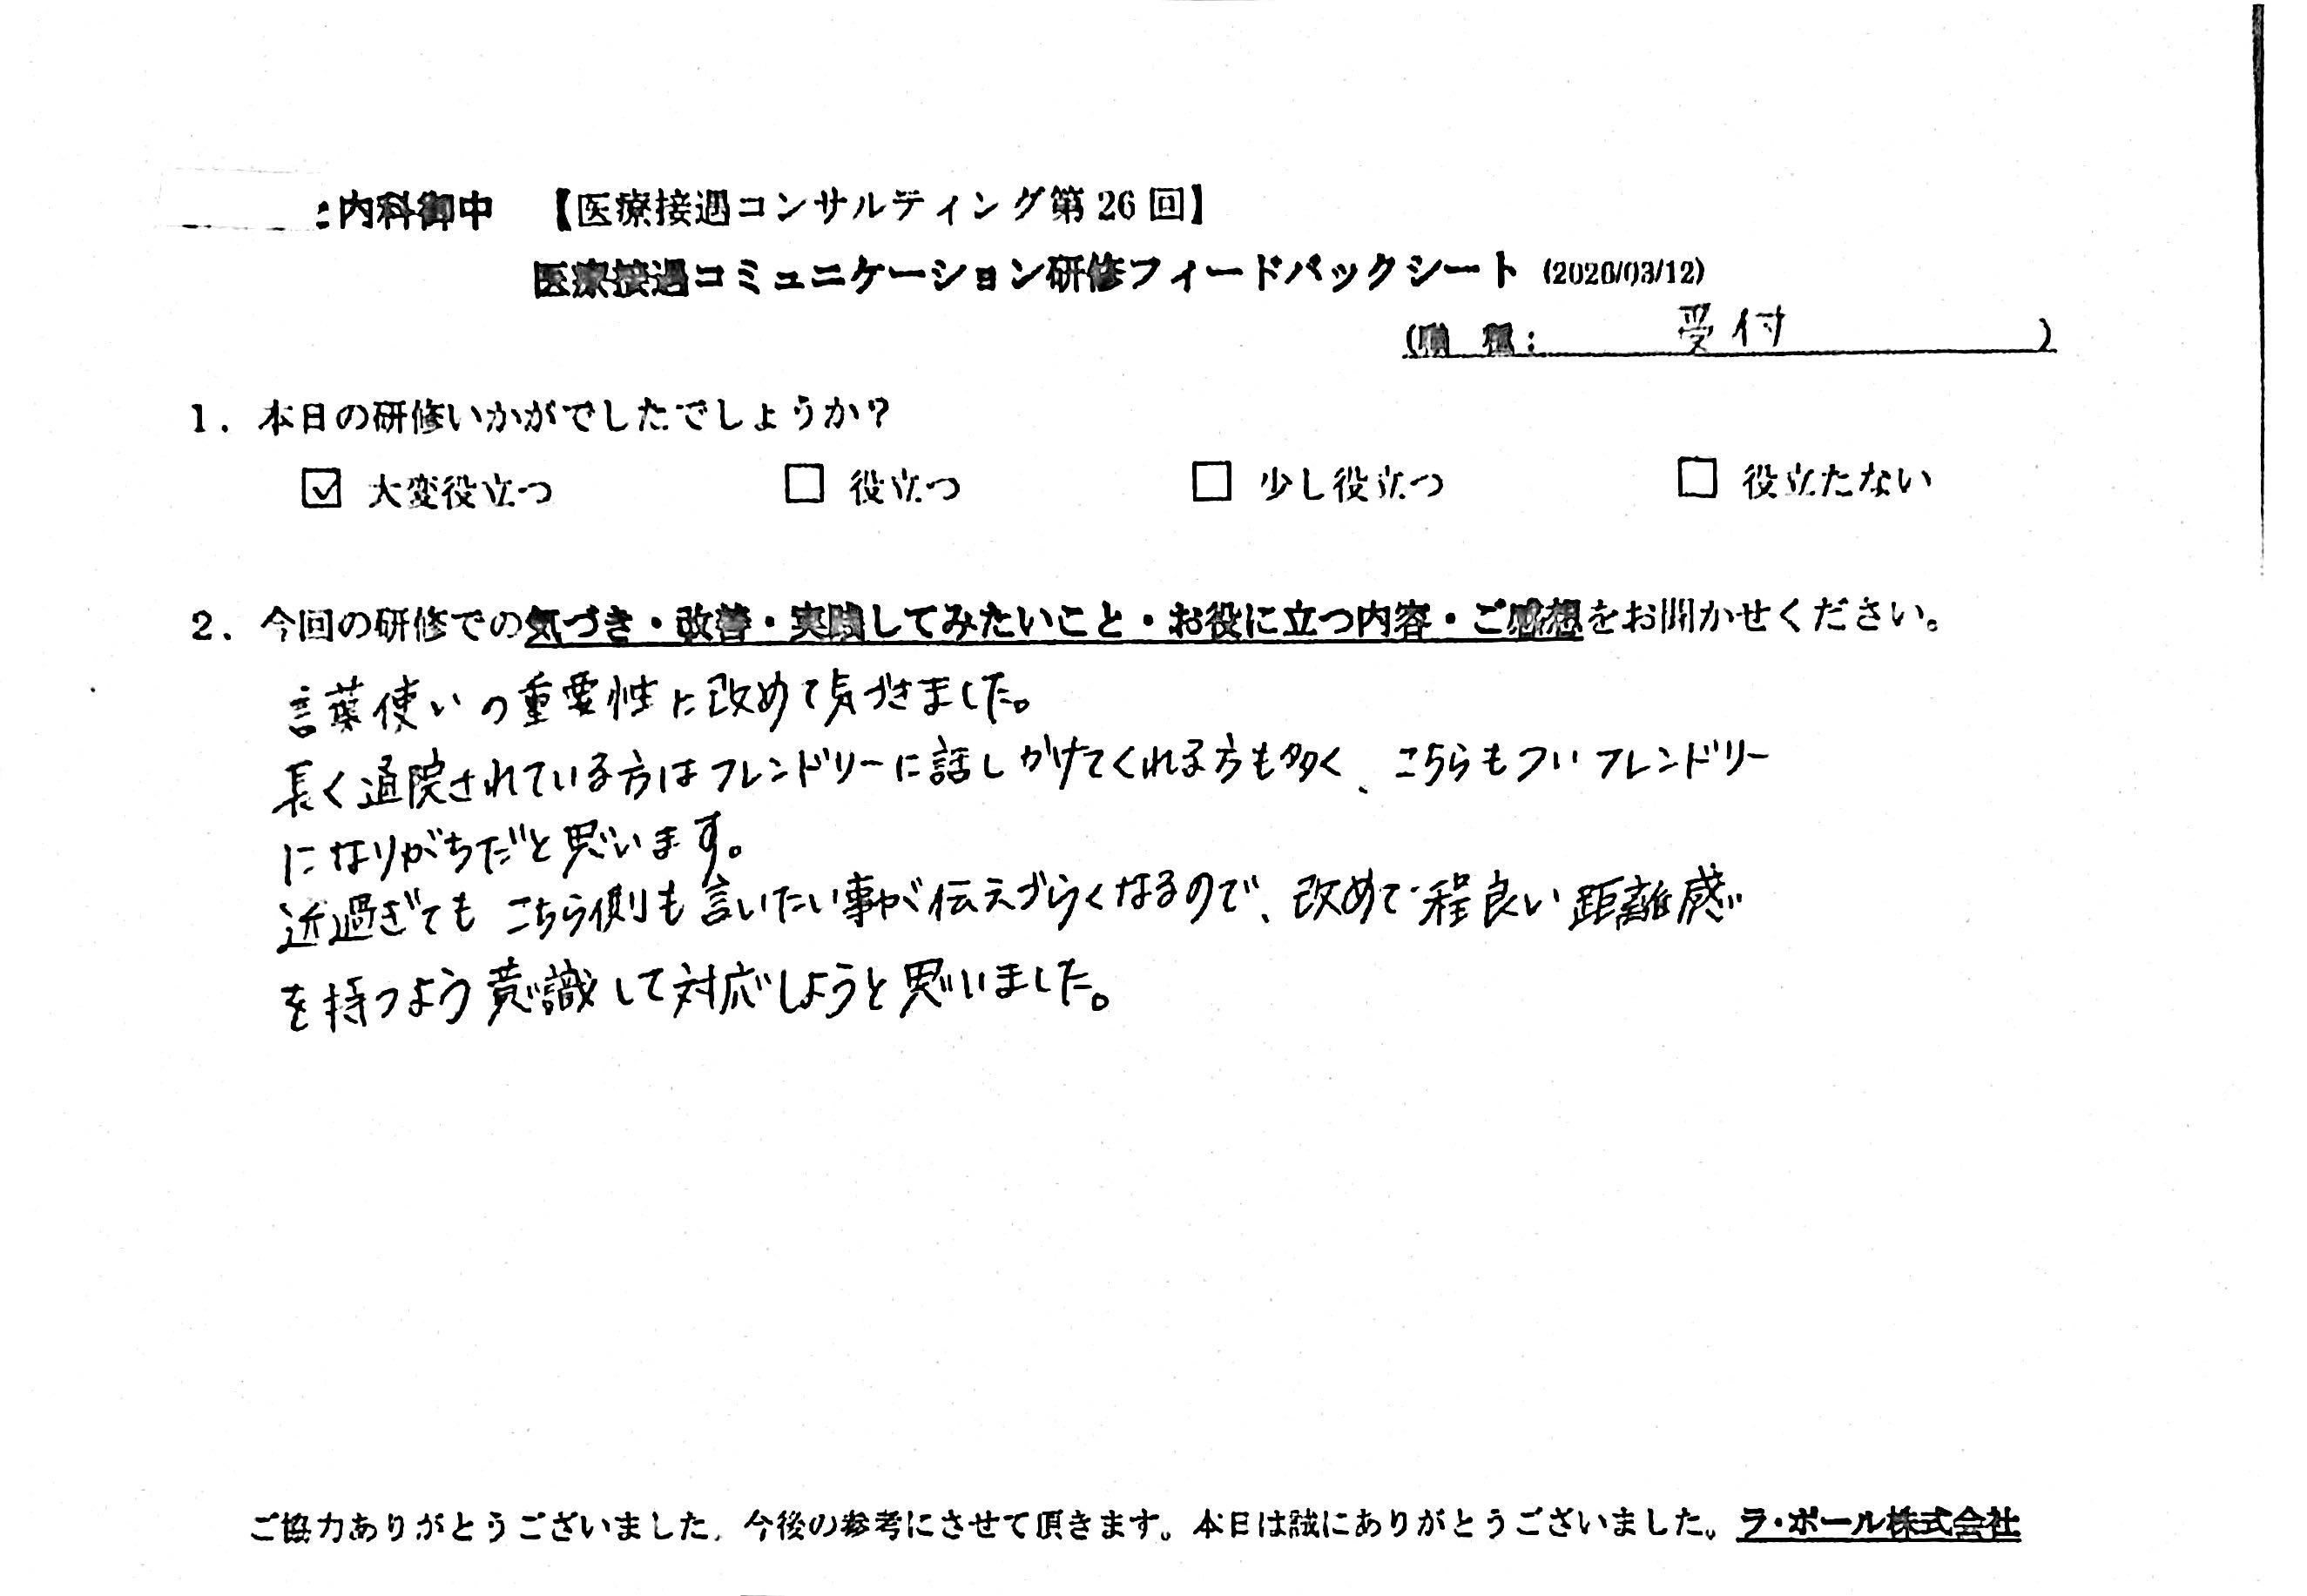 内科御中 【医療接遇コンサルティング第26回】
医療接遇コミュニケーション研修フィードバックシート (2026/03/12)
(職 種: 受付 )
1. 本日の研修いかがでしたでしょうか?
☑ 大変役立つ □ 役立つ □ 少し役立つ □ 役立たない
2. 今回の研修での気づき・改善・実践してみたいこと・お役に立つ内容・ご感想をお聞かせください。
言葉使いの重要性に改めて気づきました。
長く通院されている方はフレンドリーに話しかけてくれる方も多く、こちらもついフレンドリー
になりがちだと思います。
近過ぎてもこちら側も言いたい事が伝えづらくなるので、改めて程良い距離感
を持つよう意識して対応しようと思いました。
ご協力ありがとうございました。今後の参考にさせて頂きます。本日は誠にありがとうございました。ラ・ポール株式会社